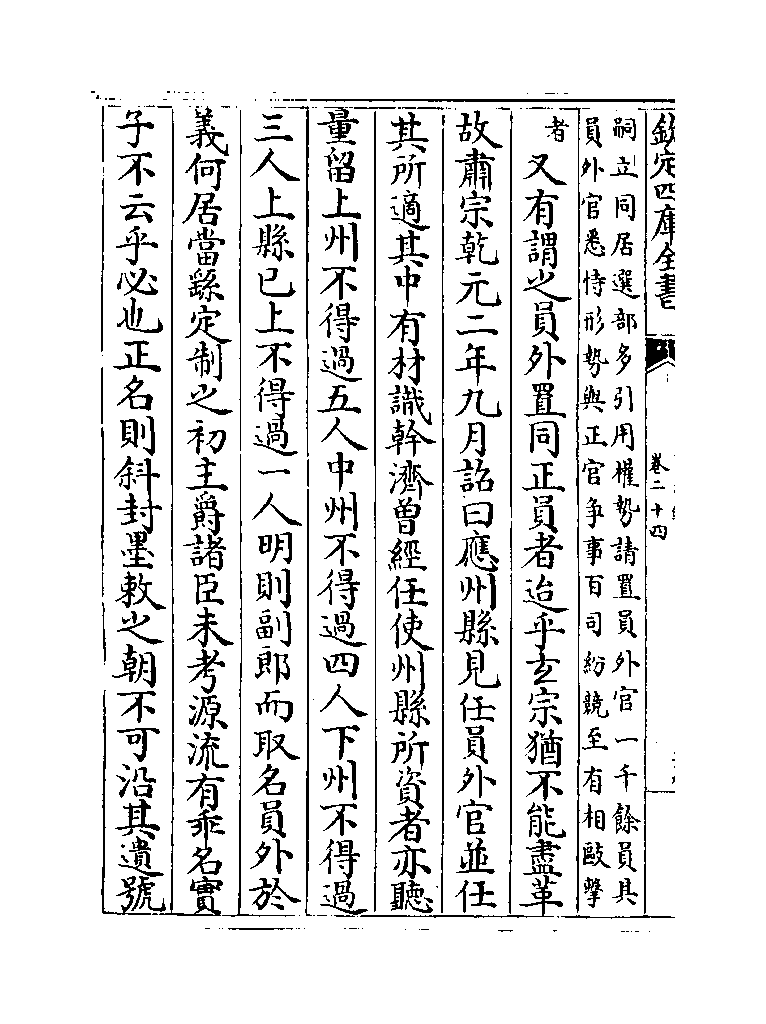 欽定四庫全書
卷二十四
嗣立同居選部多引用權勢請置員外官一千餘員其
員外官悉恃形勢與正官争事百司紛競至有相毆擊
者 又有謂之員外置同正員者迨乎𤣥宗猶不能盡革
故肅宗乾元二年九月詔曰應州縣見任員外官並任
其所適其中有材識幹濟曾經任使州縣所資者亦聽
量留上州不得過五人中州不得過四人下州不得過
三人上縣已上不得過一人明則副郎而取名員外於
義何居當繇定制之初主爵諸臣未考源流有乖名實
子不云乎必也正名則斜封墨敕之朝不可沿其遺號